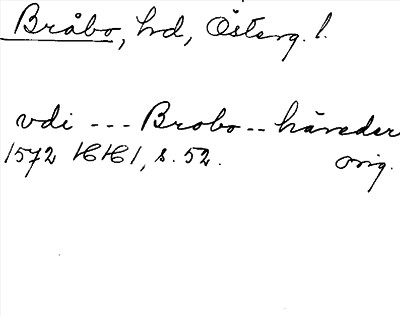 Bråbo, hd, Österg. l.
vdi --- Brobo -- häreder
1572 HH1, s. 52.
orig.